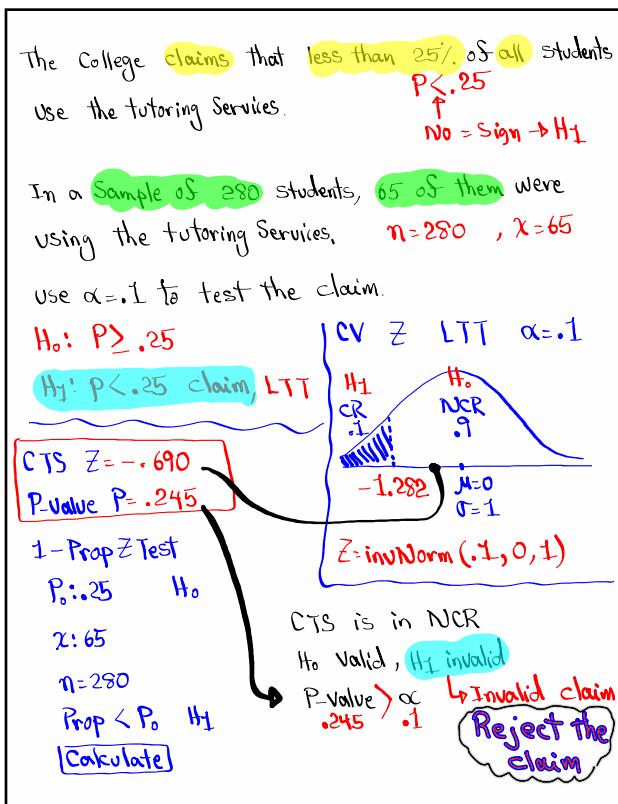 The College claims that less than 25% of all students
P<.25
use the tutoring Services.
No = Sign → H1
In a Sample of 280 students, 65 of them were
using the tutoring Services.
n=280 , x=65
use α=.1 to test the claim.
H₀: P≥.25
H1: P<.25 claim, LTT
CTS Z=-.690
P-value P=.245
1-Prop Z Test
P₀:.25 H₀
x:65
n=280
Prop < P₀ H1
Calculate
CV Z LTT α=.1
H1 H₀
CR NCR
.1 .9
-1.282 μ=0
σ=1
Z=invNorm(.1,0,1)
CTS is in NCR
H₀ Valid, H1 invalid
↳ Invalid claim
P-value > α
.245 .1
Reject the
claim